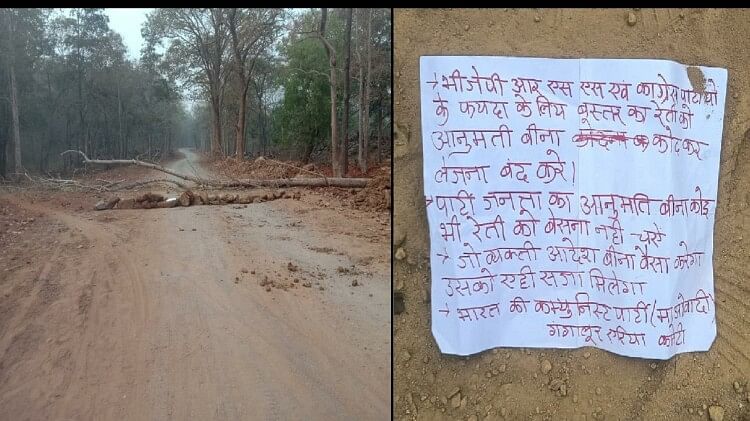 → भीजेपी आर एस एस एवं कांग्रेस पार्टीयो
के फयदा के लिय बूस्तर का रेती को
आनुमती बीना कोदकर
लेजना बंद करे!
→ पार्टी जनता का आनुमति बीना कोइ
भी रेती को बेसना नही चाहे
→ जो व्यक्ती आदेश बीना बेसा करेगा
उसको सही सजा मिलेगा
→ भारत की कम्युनिस्ट पार्टी (माओवादि)
गंगालूर एरिया कमेटी